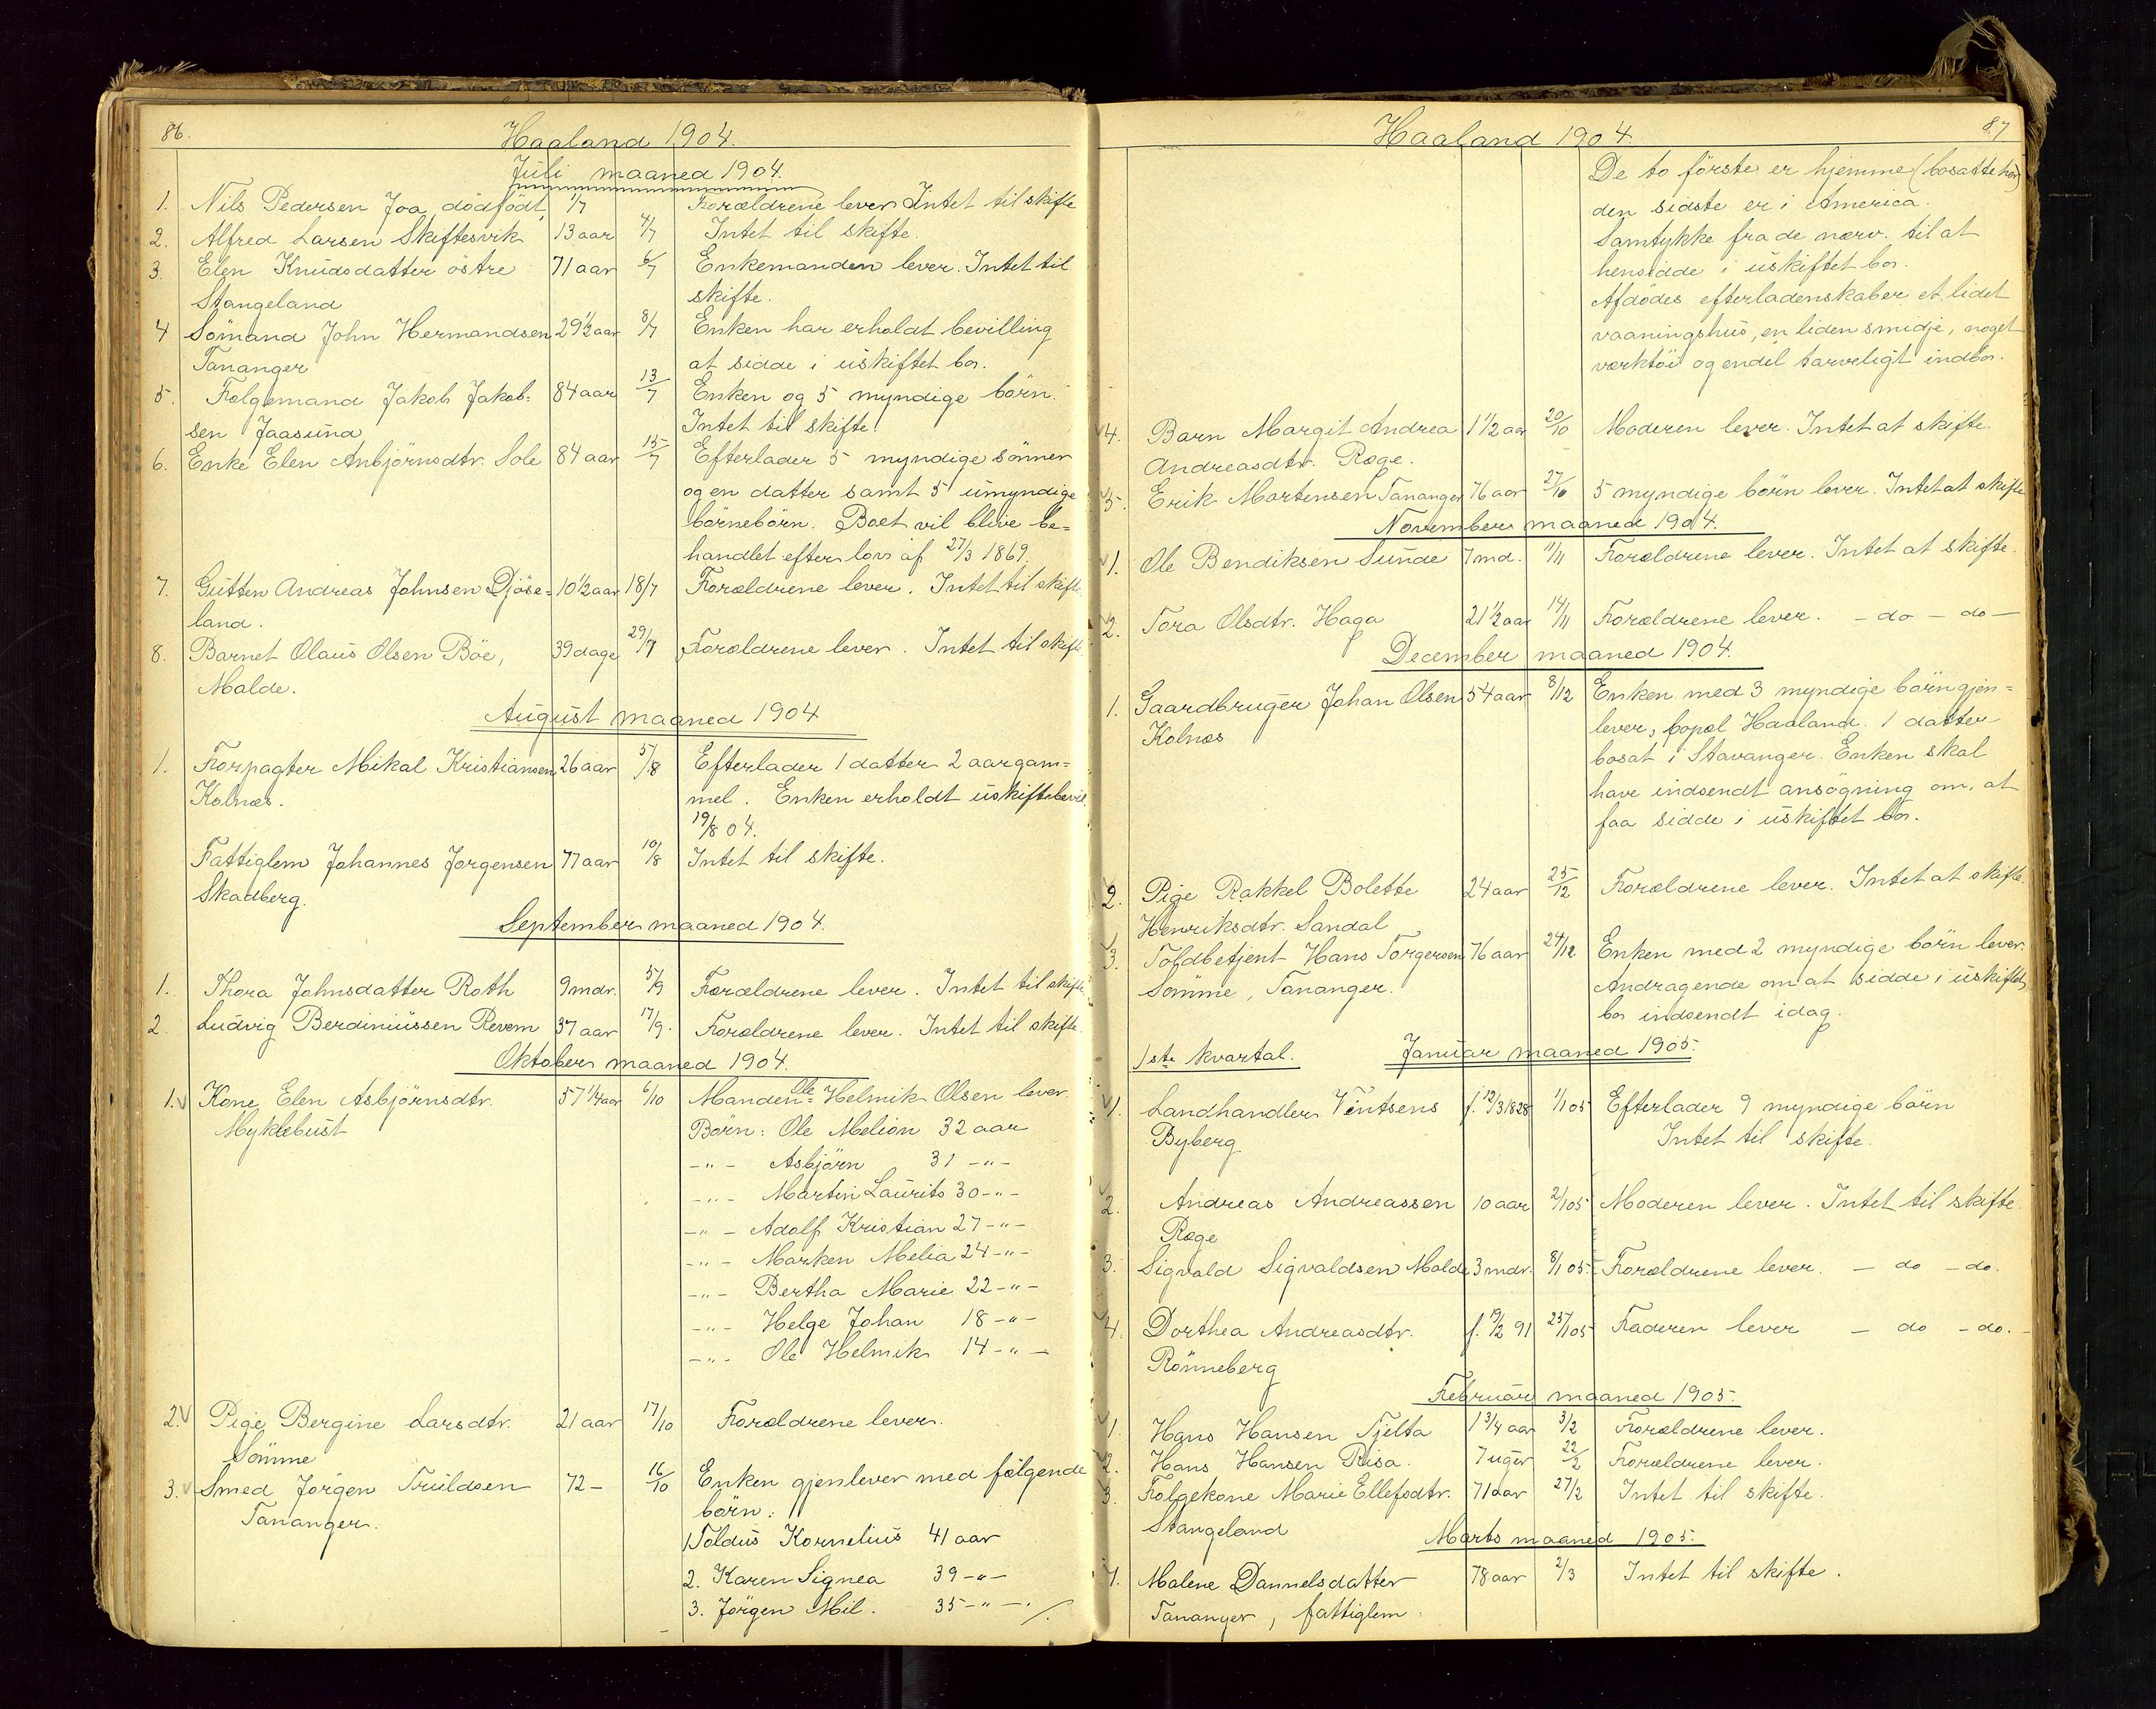 86.
Haaland 1904.
Juli maaned 1904.
1. Nils Pedersen Joa, dödfödt, 1/7 Forældrene lever. Intet til skifte
2. Alfred Larsen Skiftesvik 13 aar 4/7 Intet til skifte.
3. Elen Knudsdatter östre 71 aar 6/7 Enkemanden lever. Intet til
Stangeland skifte.
4 Sömand John Hermandsen 29 1/2 aar 8/7 Enken har erholdt bevilling
Tananger at sidde i uskiftet bo.
5. Folgemand Jakob Jakob= 84 aar 13/7 Enken og 5 myndige börn.
sen Jaasund Intet til skifte.
6. Enke Elen Anbjörnsdtr. Sole 84 aar 15/7 Efterlader 5 myndige sönner
og en datter samt 5 umyndige
börnebörn. Boet vil blive be=
handlet efter lov af 27/3 1869.
7. Gutten Andreas Johnsen Djöse= 10 1/2 aar 18/7 Forældrene lever. Intet til skifte
land.
8. Barnet Olaus Olsen Böe, 39 dage 29/7 Forældrene lever. Intet til skifte.
Malde.
August maaned 1904
1. Forpagter Mikal Kristiansen 26 aar 5/8 Efterlader 1 datter 2 aar gam=
Kolnæs. mel. Enken erholdt uskiftebevil.
19/8 04.
Fattiglem Johannes Jorgensen 77 aar 10/8 Intet til skifte.
Skadberg.
September maaned 1904.
1. Thora Johnsdatter Roth 9 mdr. 5/9 Forældrene lever. Intet til skifte
2. Ludvig Berdiniussen Revem 37 aar 17/9. Forældrene lever. Intet til skifte.
Oktober maaned 1904.
1. Kone Elen Asbjörnsdtr. 57 1/4 aar 6/10 Manden Ole Helmik Olsen lever.
Myklebust Börn: Ole Melion 32 aar
-"- Asbjörn 31 -"-
-"- Martin Laurits 30 -"-
-"- Adolf Kristian 27 -"-
-"- Marken Melia 24 -"-
-"- Bertha Marie 22 -"-
-"- Helge Johan 18 -"-
-"- Ole Helmik 14 -"-
2. Pige Bergine Larsdtr. 21 aar 17/10 Forældrene lever.
Sömme
3. Smed Jörgen Truldsen 72 - 16/10 Enken gjenlever med følgende
Tananger. börn:
1 Toldus Kornelius 41 aar
2. Karen Signea 39 -"-
3. Jörgen Mil. 35 -"-
87
Haaland 1904.
De to förste er hjemme (bosatte her)
den sidste er i America.
Samtykke fra de nærv. til at
hensidde i uskiftet bo.
Afdödes efterladenskaber et lidet
vaaningshus, en liden smidje, noget
værktöi og endel tarveligt indbo.
4. Barn Margit Andrea 1 1/2 aar 20/10 Moderen lever. Intet at skifte.
Andreasdtr. Ræge.
5. Erik Mortensen Tananger 76 aar 27/10 5 myndige börn lever. Intet at skifte
November maaned 1904.
1. Ole Bendiksen Sunde 7 md. 11/11 Forældrene lever. Intet at skifte.
2. Tora Olsdtr. Haga 21 1/2 aar 14/11 Forældrene lever. - do - do -
December maaned 1904.
1. Gaardbruger Johan Olsen 54 aar 8/12 Enken med 3 myndige börn gjen=
Kolnæs lever, bopæl Haaland. 1 datter
bosat i Stavanger. Enken skal
have indsendt ansögning om, at
faa sidde i uskiftet bo.
2. Pige Rakkel Bolette 24 aar 25/12 Forældrene lever. Intet at skifte.
Henriksdtr. Sandal
3. Toldbetjent Hans Torgersen 76 aar 24/12 Enken med 2 myndige börn lever.
Sömme, Tananger. Andragende om at sidde i uskiftet
bo indsendt idag.
1ste kvartal. Januar maaned 1905.
1. Landhandler Vintsens f. 12/3 1828 1/1 05 Efterlader 9 myndige börn
Byberg Intet til skifte.
2. Andreas Andreassen 10 aar 2/1 05 Moderen lever. Intet til skifte.
Ræge
3. Sigvald Sigvaldsen Malde 3 mdr. 8/1 05 Forældrene lever. - do - do.
4. Dorthea Andreasdtr. f. 19/2 91 25/1 05 Faderen lever - do - do. -
Rönneberg
Februar maaned 1905.
1. Hans Hansen Tjelta 1 3/4 aar 3/2 Forældrene lever.
2. Hans Hansen Risa. 7 uger 22/2 Forældrene lever.
3. Folgekone Marie Ellefsdtr. 71 aar 27/2 Intet til skifte.
Stangeland
Marts maaned 1905.
1. Malene Dannelsdatter 78 aar 2/3 Intet til skifte.
Tananger, fattiglem.